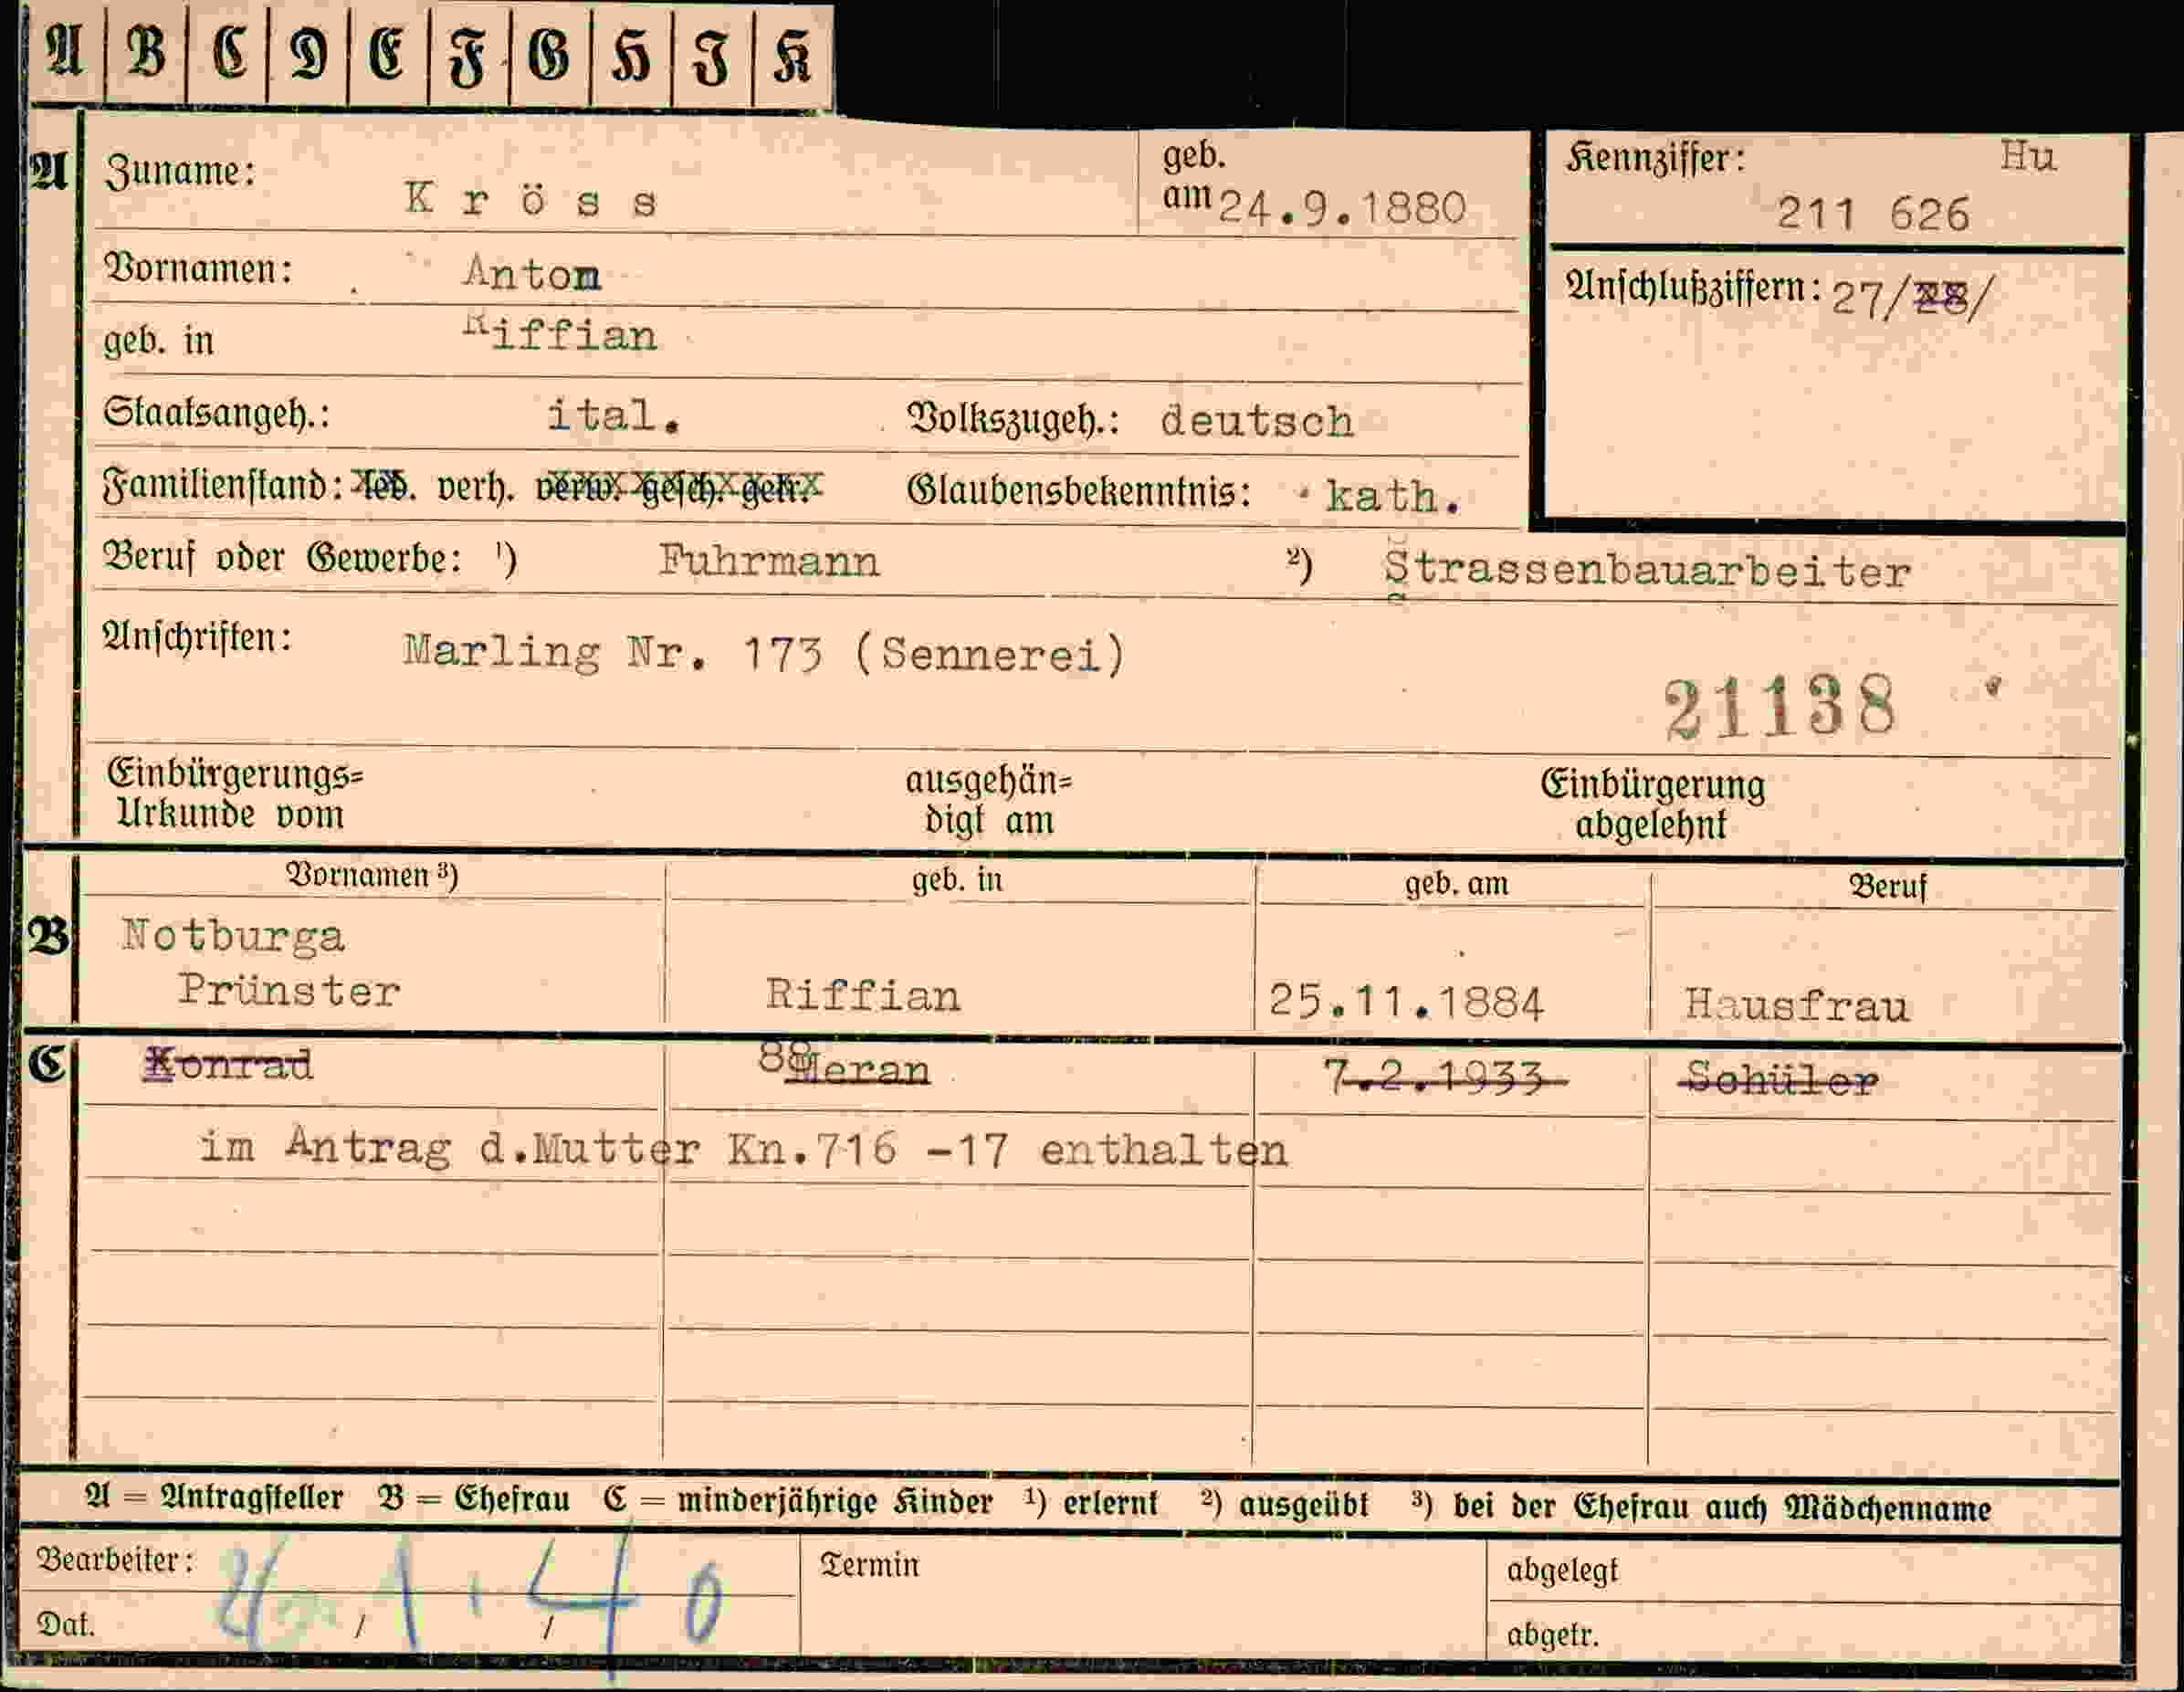 A B C D E F G H I K
A Zuname: Kröss geb. am 24.9.1880
Kennziffer: Hu
211 626
Vornamen: Anton
Anschlußziffern: 27/28/
geb. in Riffian
Staatsangeh.: ital. Volkszugeh.: deutsch
Familienstand: led. verh. verw. gesch. getr. Glaubensbekenntnis: kath.
Beruf oder Gewerbe: ¹) Fuhrmann ²) Strassenbauarbeiter
Anschriften: Marling Nr. 173 (Sennerei)
21138
Einbürgerungs= ausgehän= Einbürgerung
Urkunde vom digt am abgelehnt
Vornamen ³) geb. in geb. am Beruf
B Notburga
Prünster Riffian 25.11.1884 Hausfrau
C Konrad Meran 7.2.1933 Schüler
im Antrag d.Mutter Kn.716 -17 enthalten
A = Antragsteller B = Ehefrau C = minderjährige Kinder ¹) erlernt ²) ausgeübt ³) bei der Ehefrau auch Mädchenname
Bearbeiter: Termin abgelegt
Dat. / / abgetr.